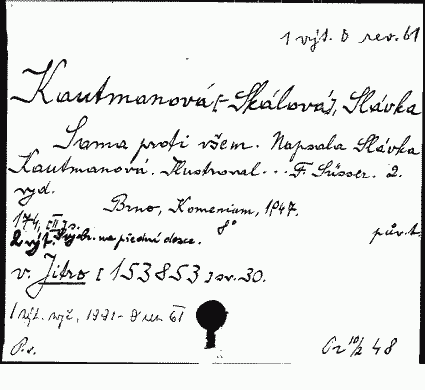 1 výt. D rev. 61
Kautmanová [-Skálová], Slávka
Sama proti všem. Napsala Slávka
Kautmanová. Ilustroval ... F. Süsser. 2.
vyd.
Brno, Komenium, 1947.
174, [II] s. 8°
2 výt. na přední desce. pův. t.
v. Jitro [153853] sv. 30.
1 výt. vyř. rev 61
P.s. 48